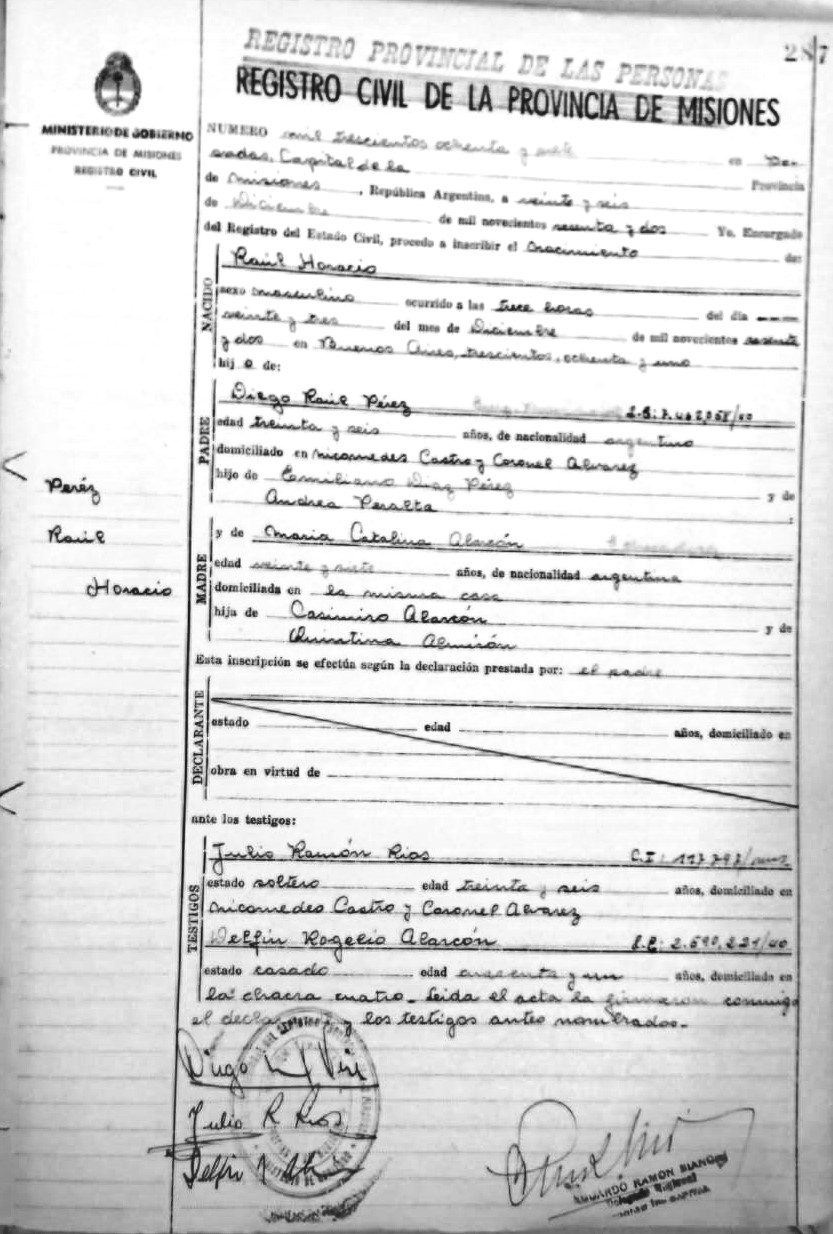 REGISTRO PROVINCIAL DE LAS PERSONAS
287
REGISTRO CIVIL DE LA PROVINCIA DE MISIONES
MINISTERIO DE GOBIERNO
PROVINCIA DE MISIONES
REGISTRO CIVIL
NUMERO mil trescientos ochenta y siete en Po-
sadas, Capital de la Provincia
de Misiones, República Argentina, a veinte y seis
de Diciembre de mil novecientos sesenta y dos Yo, Encargado
del Registro del Estado Civil, procedo a inscribir el nacimiento de:
NACIDO
Raúl Horacio
sexo masculino ocurrido a las trece horas del día
veinte y tres del mes de Diciembre de mil novecientos sesenta
y dos en Buenos Aires, trescientos, ochenta y uno
hijo de:
PADRE
Diego Raúl Pérez
edad treinta y seis años, de nacionalidad argentino
domiciliado en Nicomedes Castro y Coronel Alvarez
hijo de Emiliano Diaz Pérez y de
Andrea Peralta
Peréz
Raúl
Horacio
MADRE
y de Maria Catalina Alarcón
edad veinte y siete años, de nacionalidad argentina
domiciliada en la misma casa
hija de Casimiro Alarcón y de
Quintina Almirón
Esta inscripción se efectúa según la declaración prestada por: el padre
DECLARANTE
estado edad años, domiciliado en
obra en virtud de
ante los testigos:
TESTIGOS
Julio Ramón Rios C.I: 117.797
estado soltero edad treinta y seis años, domiciliado en
Nicomedes Castro y Coronel Alvarez
Delfin Rogelio Alarcón 2.590.221/40
estado casado edad cuarenta y un años, domiciliado en
la chacra cuatro. Leida el acta la firmaron conmigo
el declarante y los testigos antes nombrados.-
Diego
Julio R Rios
Delfin
EDUARDO RAMON BIANCHI
Delegado Regional